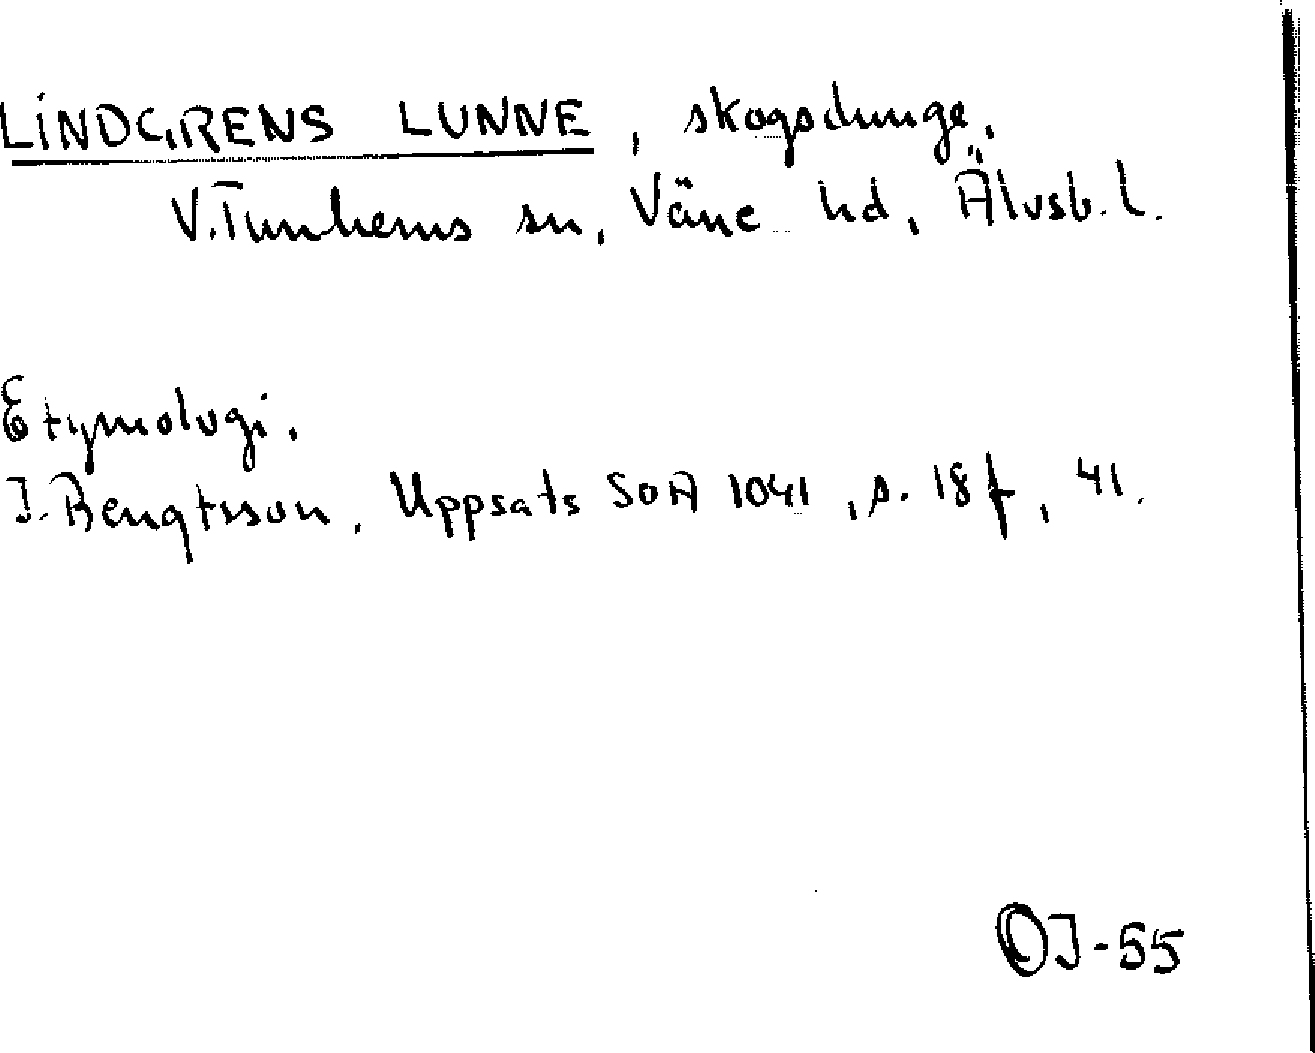 LINDGRENS LUNNE, skogsdunge,
V. Tunhems sn, Väne hd, Älvsb. l.
Etymologi.
J. Bengtsson, Uppsats SOA 1041, s. 18 f, 41.
OJ-55